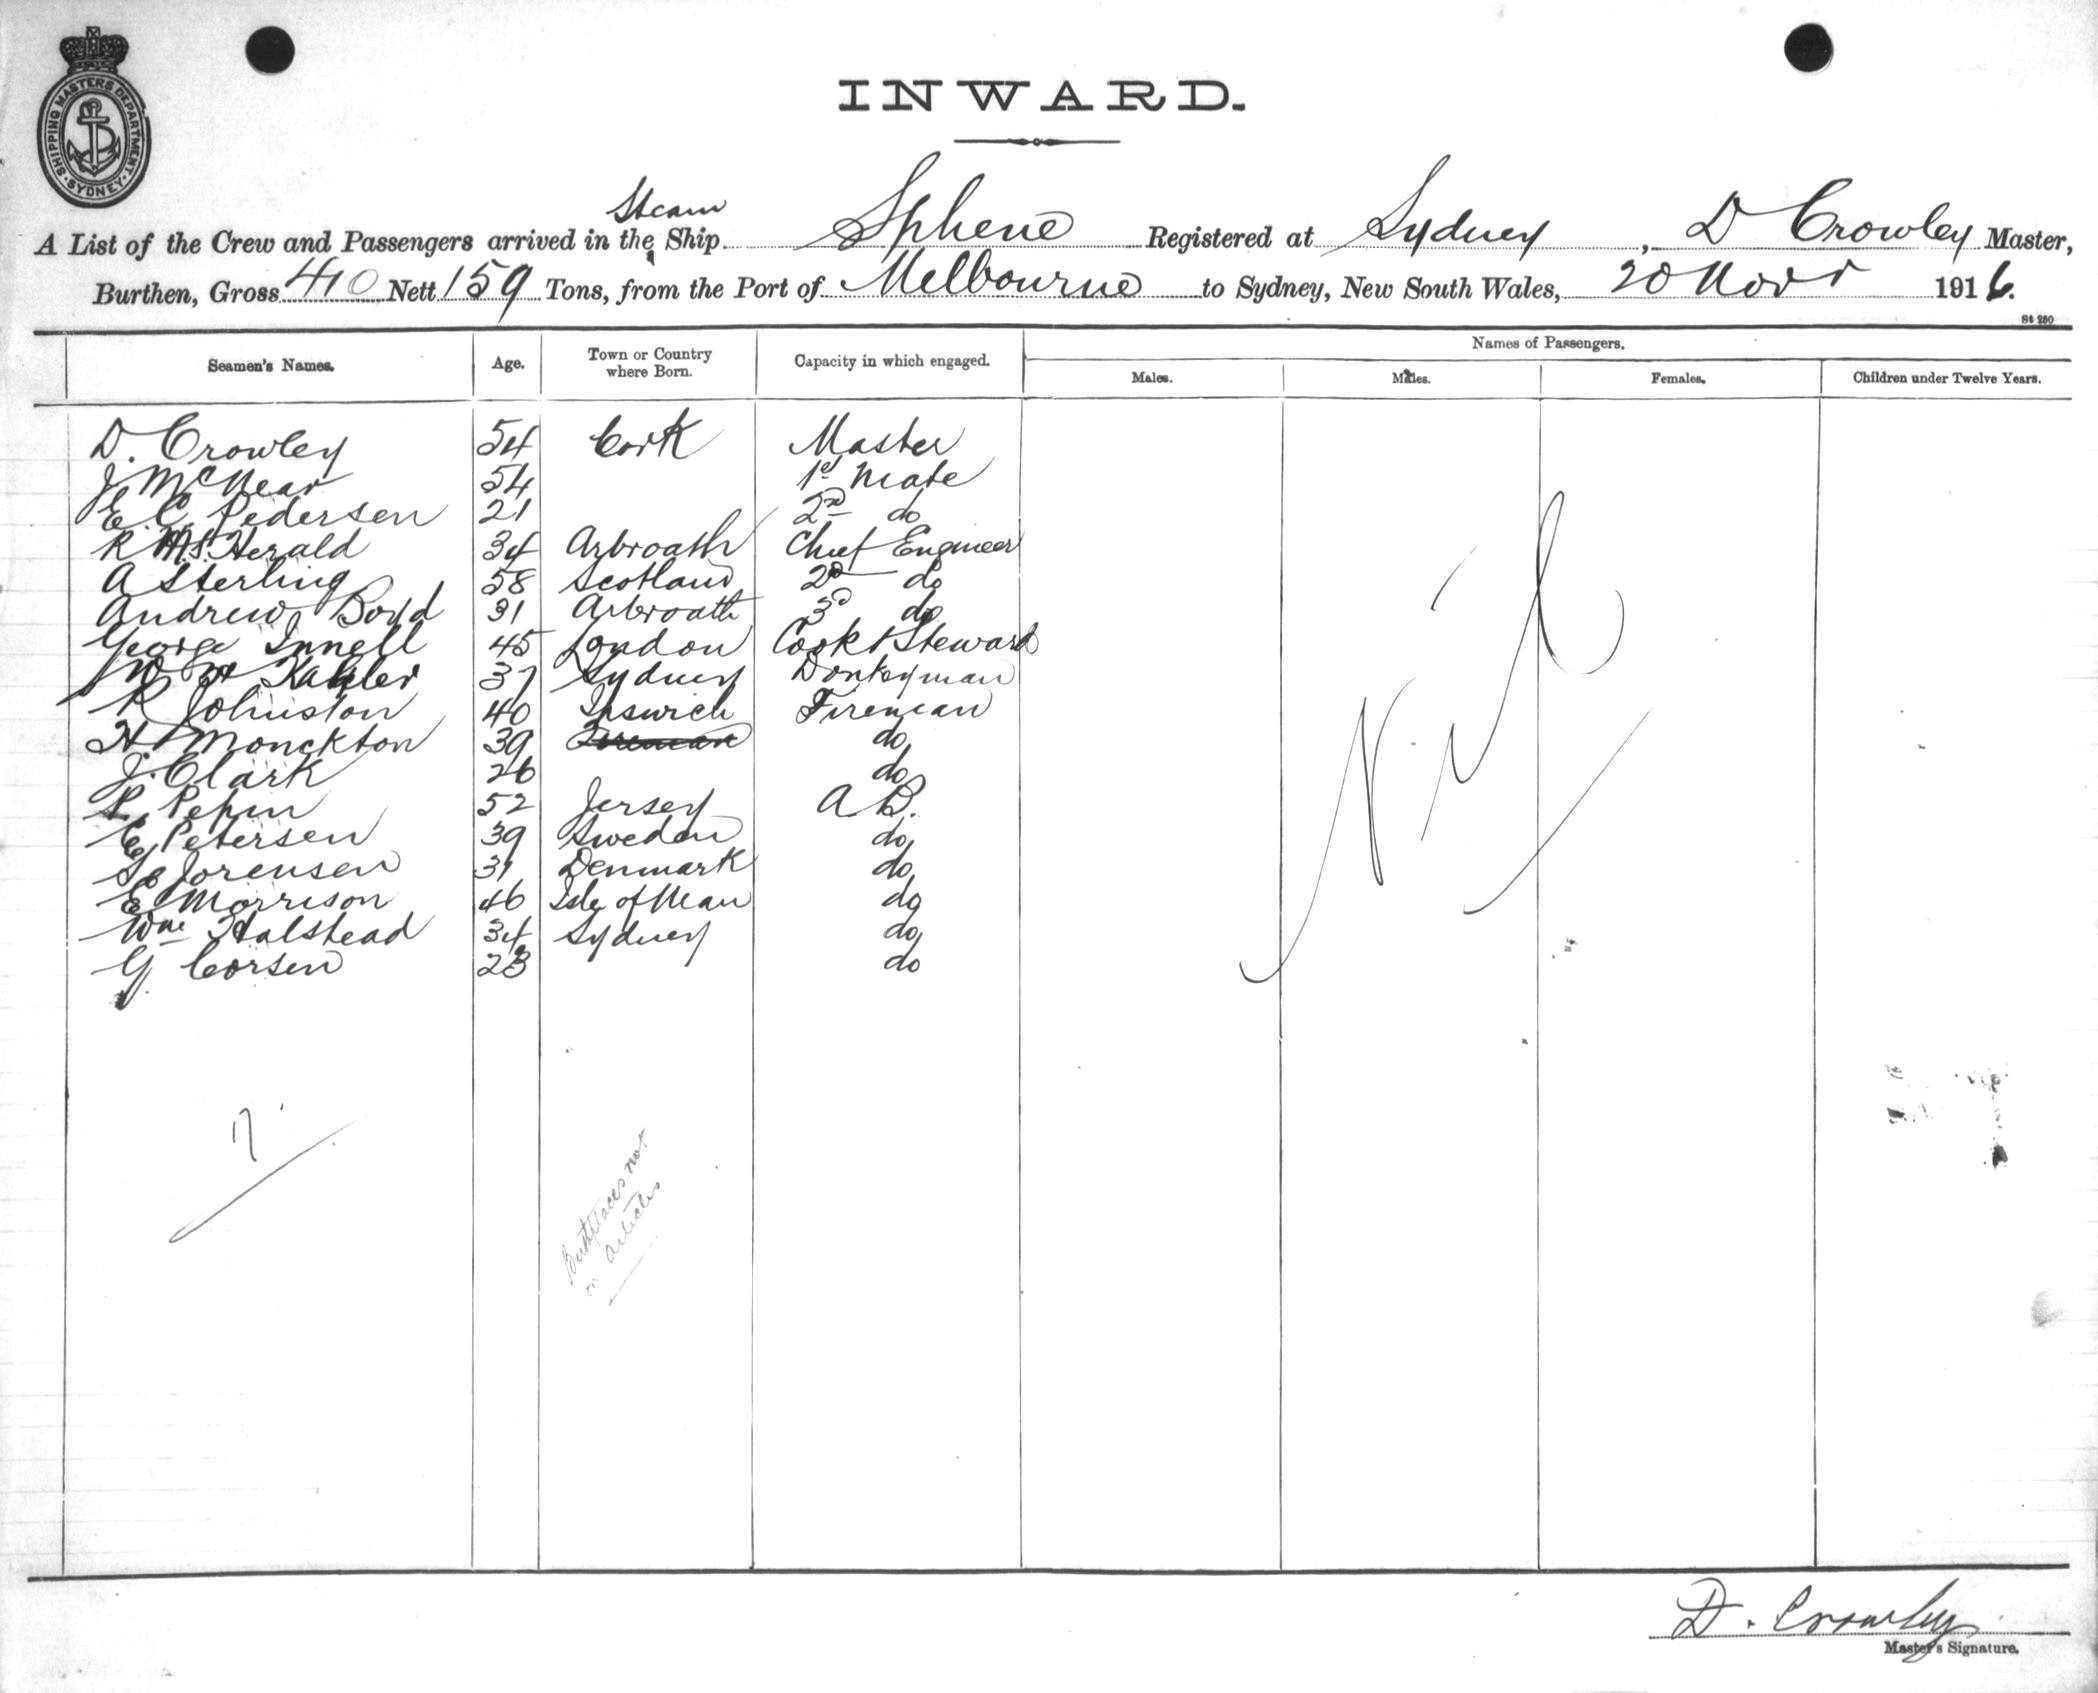 SHIPPING MASTERS DEPARTMENT. SYDNEY
INWARD.
Steam
A List of the Crew and Passengers arrived in the Ship Sphene Registered at Sydney, D Crowley Master,
Burthen, Gross 410 Nett 159 Tons, from the Port of Melbourne to Sydney, New South Wales, 20 Novr 1916.
St 260
Seamen's Names. Age. Town or Country where Born. Capacity in which engaged. Names of Passengers.
Males. Males. Females. Children under Twelve Years.
D. Crowley 54 Cork Master
J McNear 54 1st Mate
E. C. Pedersen 21 2nd do
R. M. S. Herald 34 Arbroath Chief Engineer
A Sterling 58 Scotland 2nd do
Andrew Boyd 31 Arbroath 3rd do
George Innell 45 London Cook & Steward
W H Kahler 37 Sydney Donkeyman
R Johnston 40 Ipswich Fireman
H Monckton 39 Fireman do
J. Clark 26 do
P. Pepin 52 Jersey A B.
E Petersen 39 Sweden do
Jorensen 31 Denmark do
E Morrison 46 Isle of Man do
Wm Halstead 34 Sydney do
G Corsen 23 do
Nil
17
Birthplaces not
on articles
D. Crowley
Master's Signature.